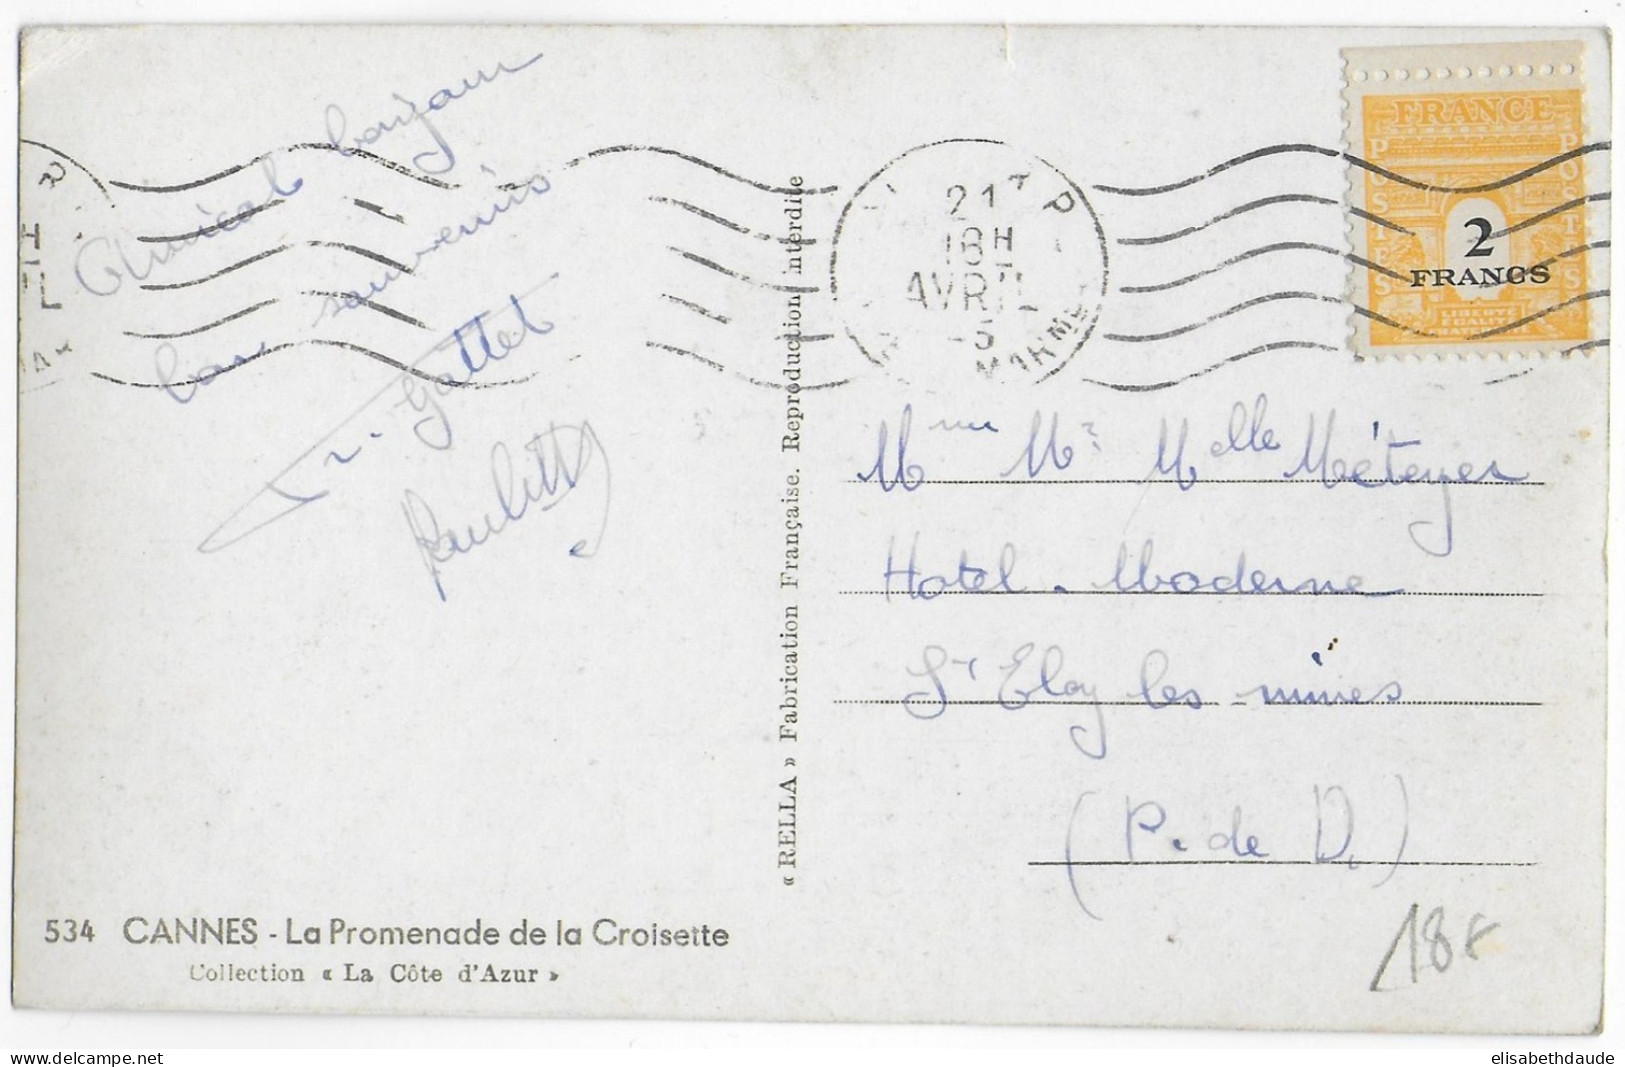 Amical bonjour
bons souvenirs
Gattet
Paulette
« RELLA » Fabrication Française. Reproduction interdite
21
18H
AVRIL
MARME
FRANCE
POSTES
POSTES
2
FRANCS
LIBERTÉ
EGALITÉ
Mme Mr Melle Méteyer
Hotel. Moderne
St Eloy les mines
(P. de D.)
534 CANNES - La Promenade de la Croisette
Collection « La Côte d'Azur »
18€
elisabethdaude